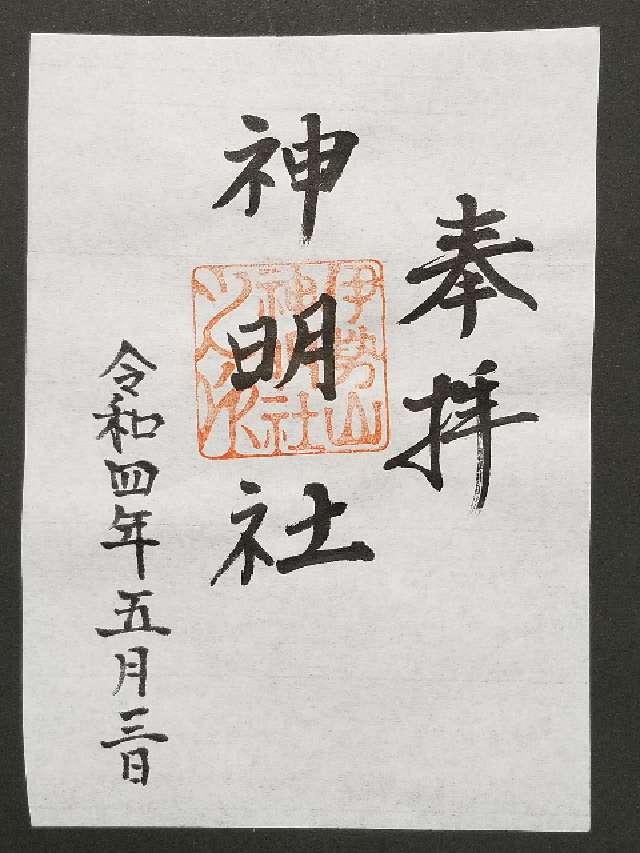 奉拝
神明社
伊勢山
神明社
之印
令和四年五月三日